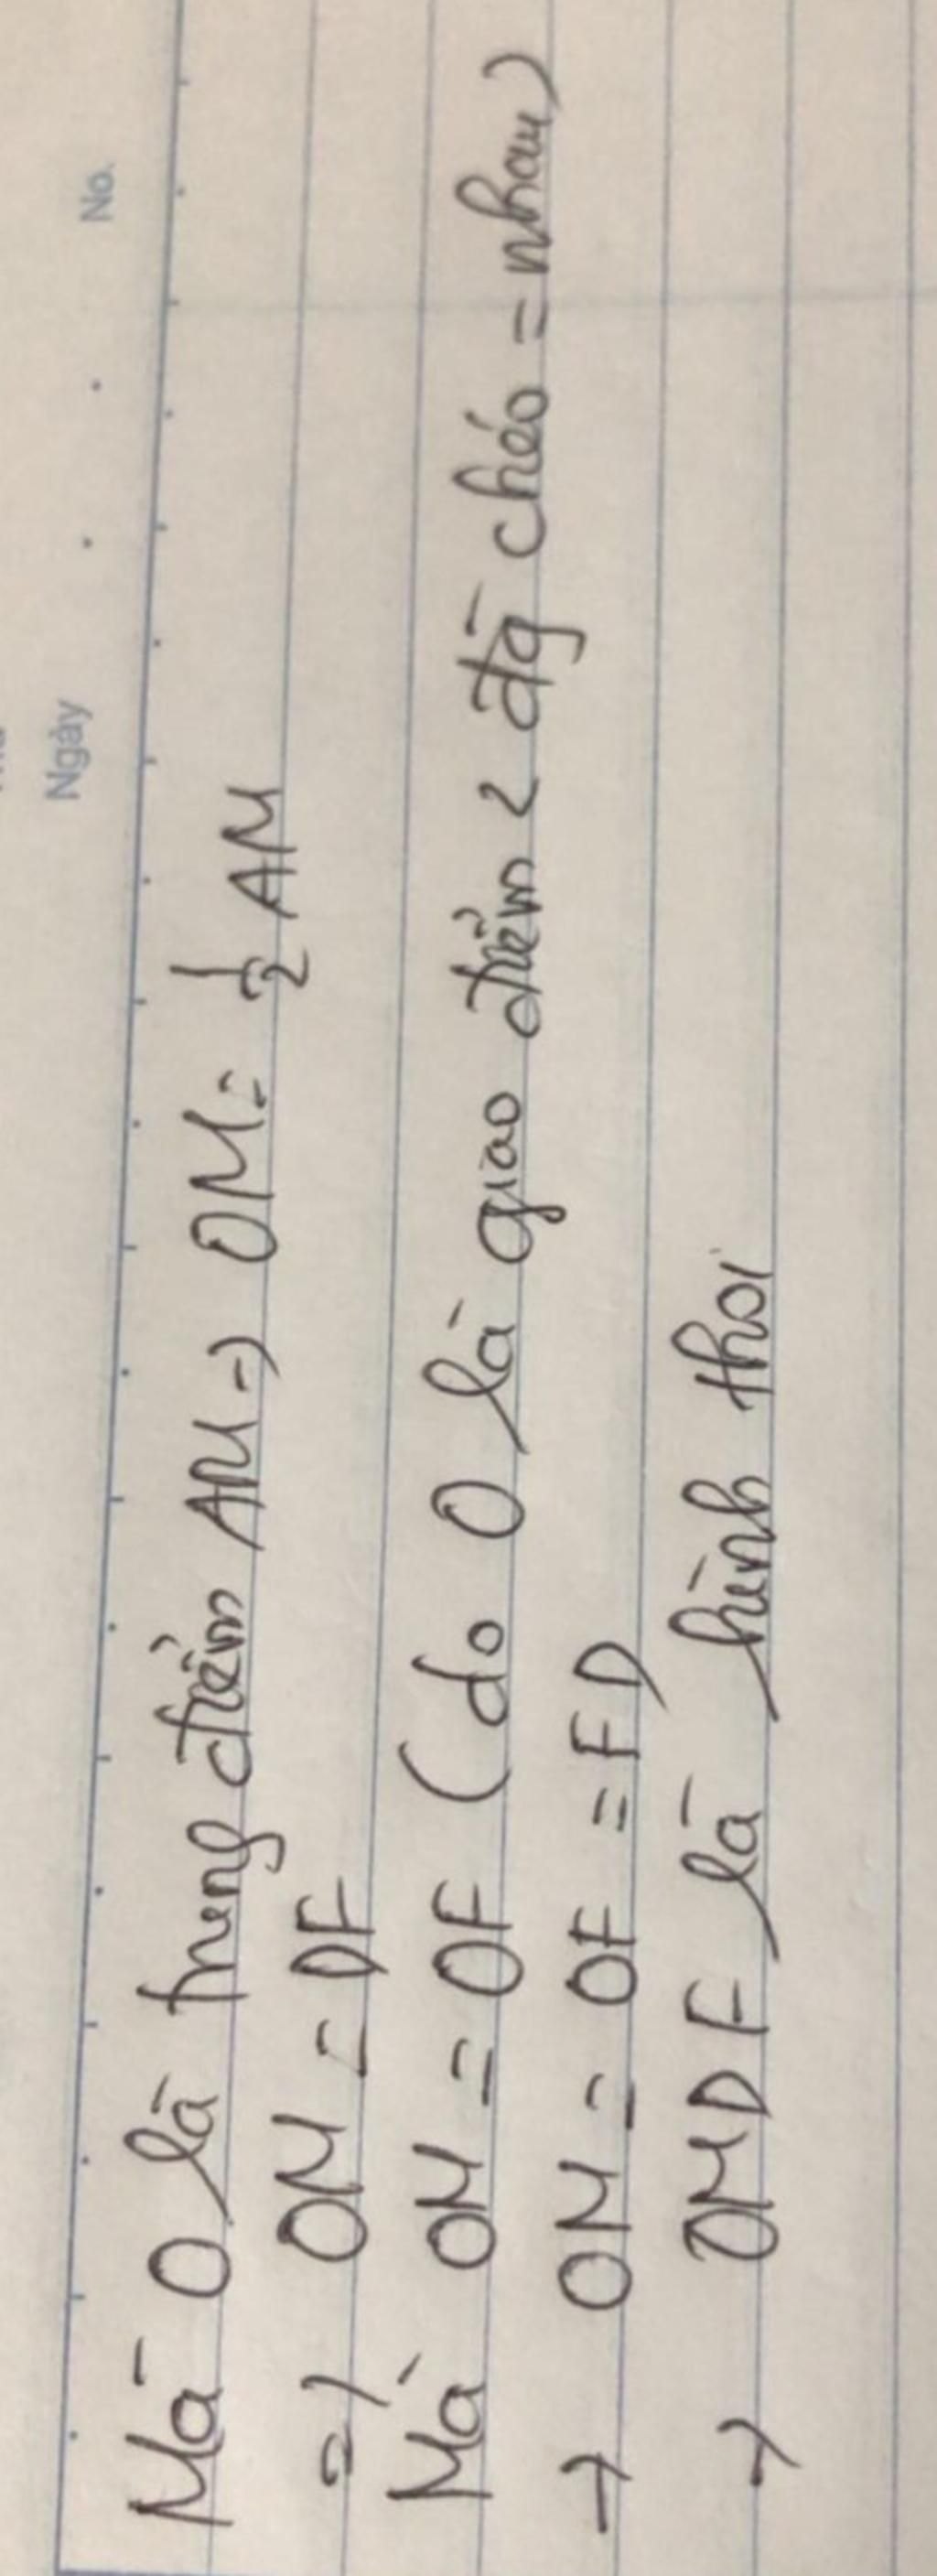 Ngày No.
Mà O là trung điểm AM => OM = 1/2 AM
=> OM = DF
Mà OM = OF (do O là giao điểm 2 đg chéo = nhau)
→ OM = OF = FD
→ OMDF là hình thoi